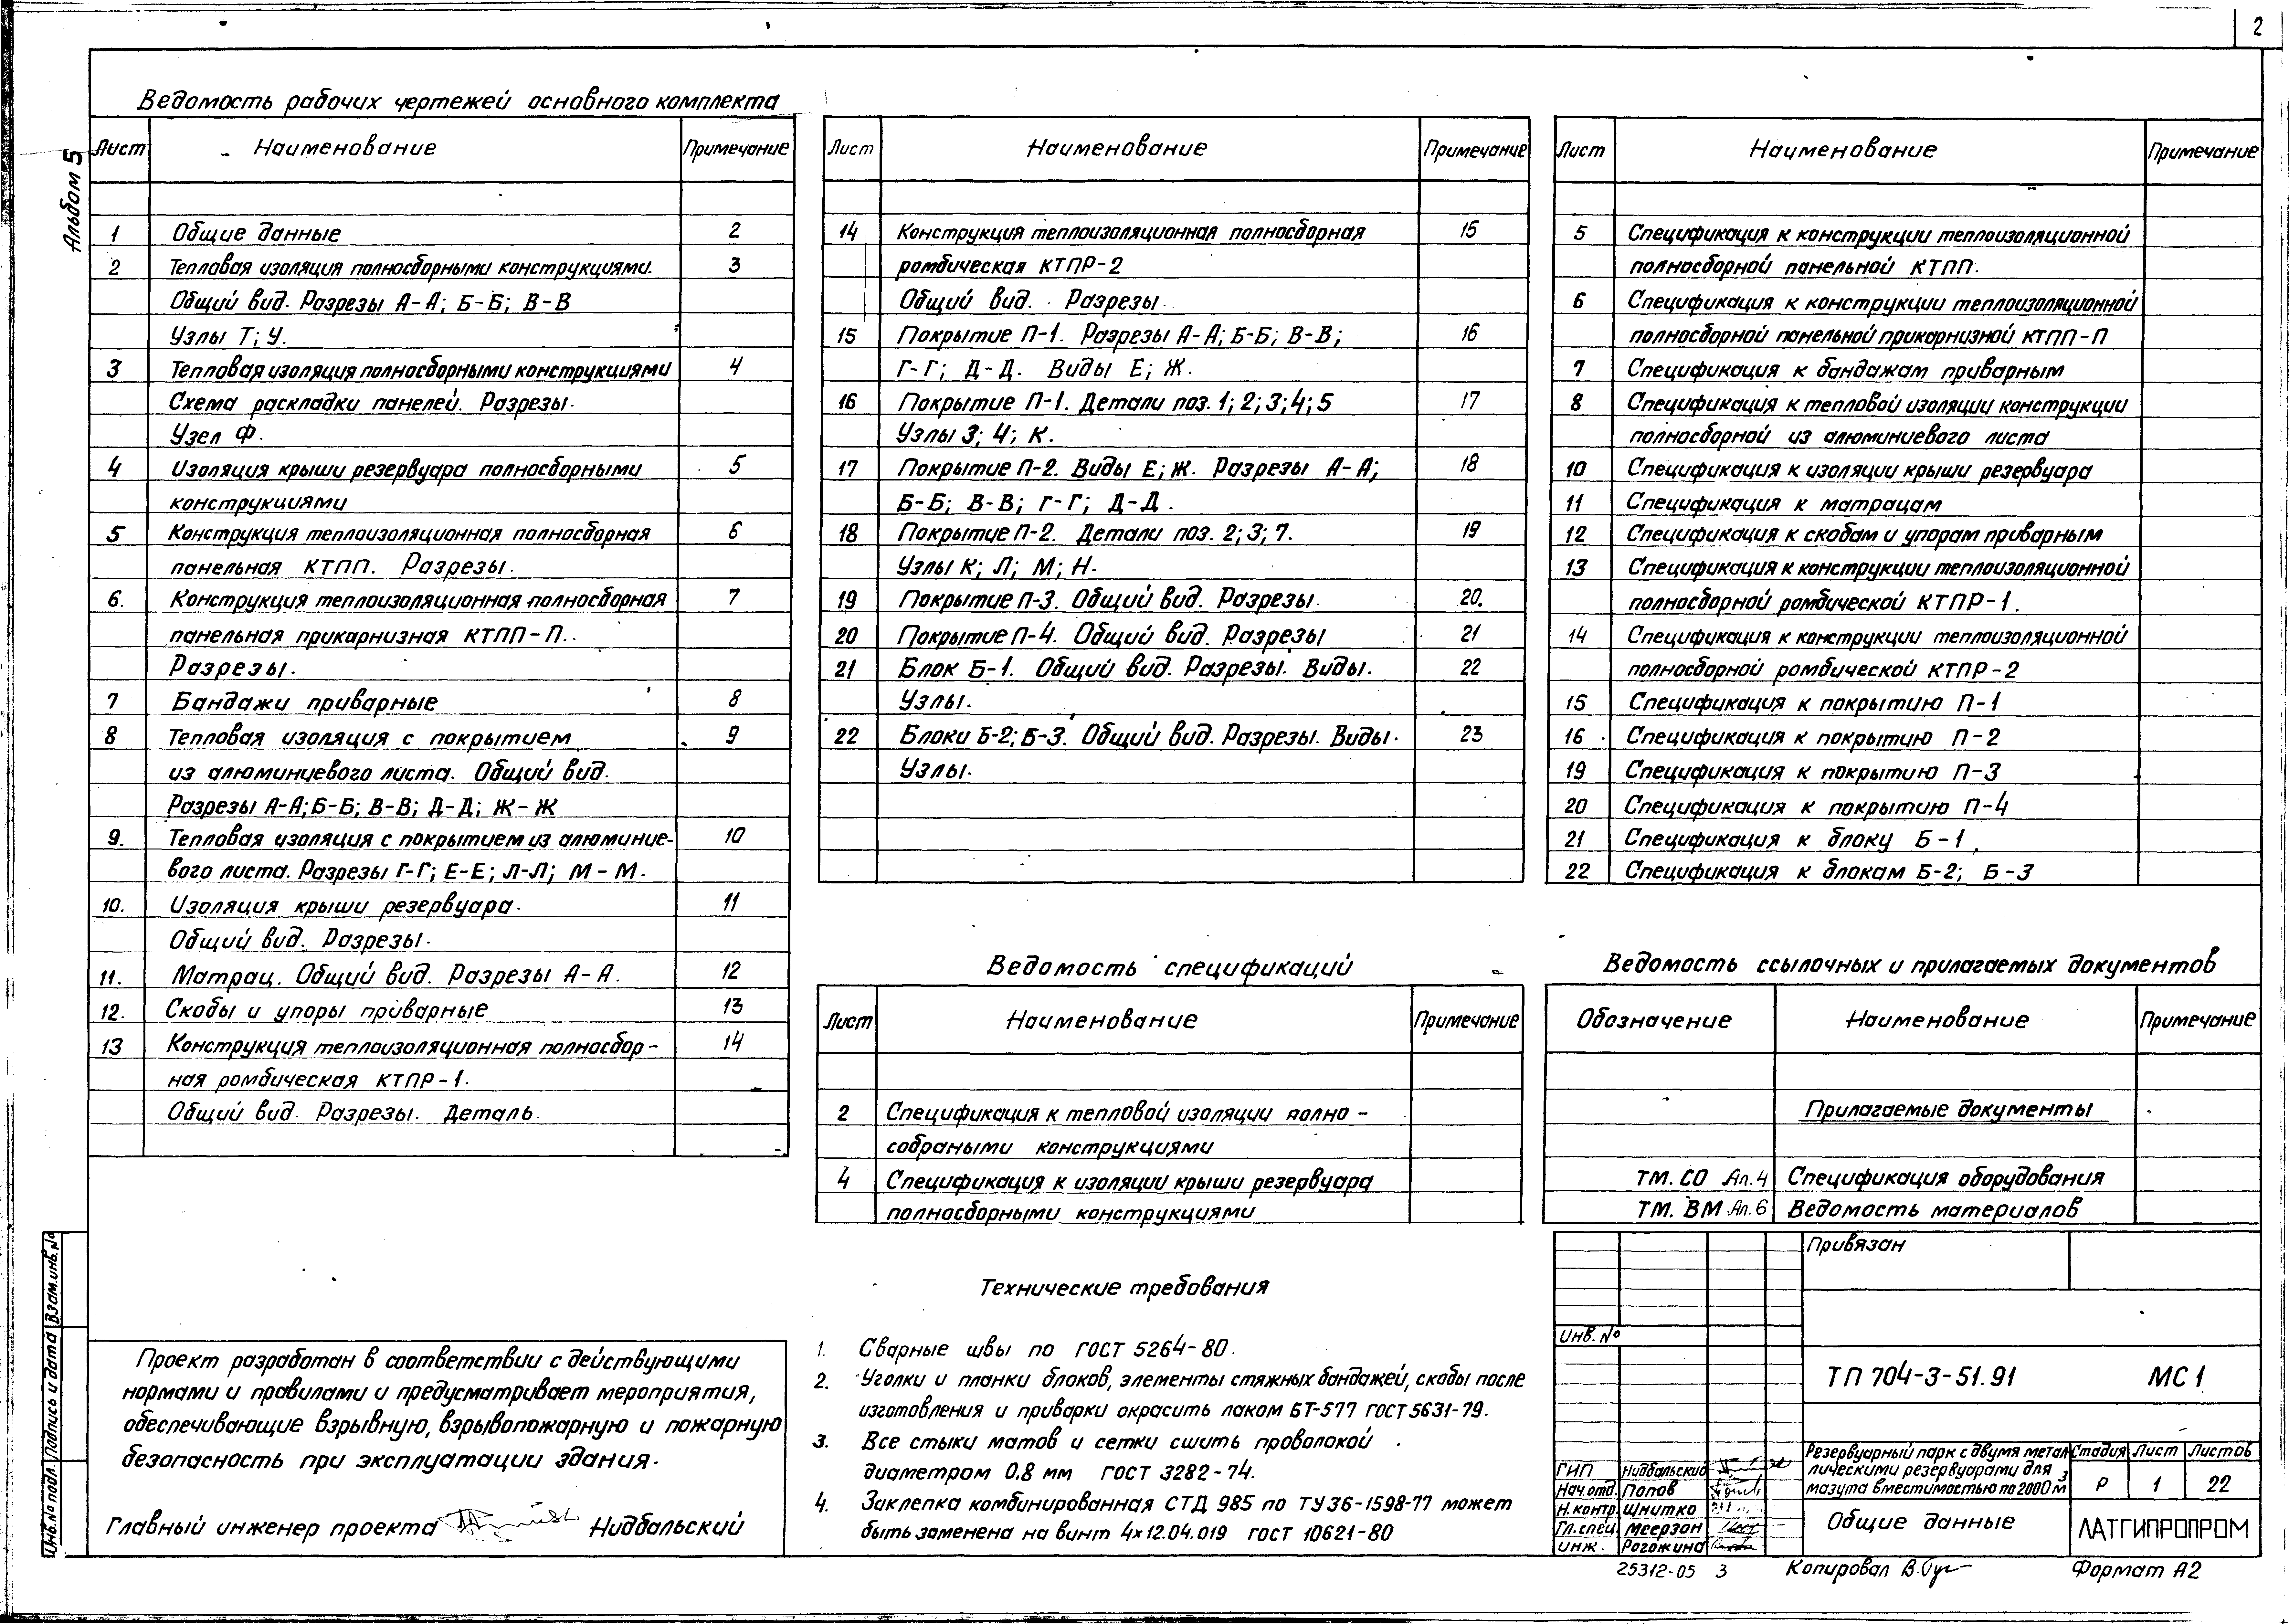 2
Альбом 5
Ведомость рабочих чертежей основного комплекта
Лист Наименование Примечание
1 Общие данные 2
2 Тепловая изоляция полносборными конструкциями. 3
Общий вид. Разрезы А-А; Б-Б; В-В
Узлы Т; У.
3 Тепловая изоляция полносборными конструкциями 4
Схема раскладки панелей. Разрезы.
Узел Ф.
4 Изоляция крыши резервуара полносборными 5
конструкциями
5 Конструкция теплоизоляционная полносборная 6
панельная КТПП. Разрезы.
6. Конструкция теплоизоляционная полносборная 7
панельная прикарнизная КТПП-П.
Разрезы.
7 Бандажи приварные 8
8 Тепловая изоляция с покрытием 9
из алюминиевого листа. Общий вид.
Разрезы А-А; Б-Б; В-В; Д-Д; Ж-Ж
9. Тепловая изоляция с покрытием из алюминие- 10
вого листа. Разрезы Г-Г; Е-Е; Л-Л; М-М.
10. Изоляция крыши резервуара. 11
Общий вид. Разрезы.
11. Матрац. Общий вид. Разрезы А-А. 12
12. Скобы и упоры приварные 13
13 Конструкция теплоизоляционная полносбор- 14
ная ромбическая КТПР-1.
Общий вид. Разрезы. Деталь.
Лист Наименование Примечание
14 Конструкция теплоизоляционная полносборная 15
ромбическая КТПР-2
Общий вид. Разрезы.
15 Покрытие П-1. Разрезы А-А; Б-Б; В-В; 16
Г-Г; Д-Д. Виды Е; Ж.
16 Покрытие П-1. Детали поз. 1; 2; 3; 4; 5 17
Узлы 3; 4; К.
17 Покрытие П-2. Виды Е; Ж. Разрезы А-А; 18
Б-Б; В-В; Г-Г; Д-Д.
18 Покрытие П-2. Детали поз. 2; 3; 7. 19
Узлы К; Л; М; Н.
19 Покрытие П-3. Общий вид. Разрезы. 20.
20 Покрытие П-4. Общий вид. Разрезы 21
21 Блок Б-1. Общий вид. Разрезы. Виды. 22
Узлы.
22 Блоки Б-2; Б-3. Общий вид. Разрезы. Виды. 23
Узлы.
Лист Наименование Примечание
5 Спецификация к конструкции теплоизоляционной
полносборной панельной КТПП.
6 Спецификация к конструкции теплоизоляционной
полносборной панельной прикарнизной КТПП-П
7 Спецификация к бандажам приварным
8 Спецификация к тепловой изоляции конструкции
полносборной из алюминиевого листа
10 Спецификация к изоляции крыши резервуара
11 Спецификация к матрацам
12 Спецификация к скобам и упорам приварным
13 Спецификация к конструкции теплоизоляционной
полносборной ромбической КТПР-1.
14 Спецификация к конструкции теплоизоляционной
полносборной ромбической КТПР-2
15 Спецификация к покрытию П-1
16 Спецификация к покрытию П-2
19 Спецификация к покрытию П-3
20 Спецификация к покрытию П-4
21 Спецификация к блоку Б-1
22 Спецификация к блокам Б-2; Б-3
Ведомость спецификаций
Лист Наименование Примечание
2 Спецификация к тепловой изоляции полно-
собраными конструкциями
4 Спецификация к изоляции крыши резервуара
полносборными конструкциями
Ведомость ссылочных и прилагаемых документов
Обозначение Наименование Примечание
Прилагаемые документы
ТМ. СО Ал. 4 Спецификация оборудования
ТМ. ВМ Ал. 6 Ведомость материалов
Проект разработан в соответствии с действующими
нормами и правилами и предусматривает мероприятия,
обеспечивающие взрывную, взрывопожарную и пожарную
безопасность при эксплуатации здания.
Главный инженер проекта Нидбальский
Технические требования
1. Сварные швы по ГОСТ 5264-80.
2. Уголки и планки блоков, элементы стяжных бандажей, скобы после
изготовления и приварки окрасить лаком БТ-577 ГОСТ 5631-79.
3. Все стыки матов и сетки сшить проволокой
диаметром 0,8 мм ГОСТ 3282-74.
4. Заклепка комбинированная СТД 985 по ТУ36-1598-77 может
быть заменена на винт 4х12.04.019 ГОСТ 10621-80
Привязан
Инв. №
ТП 704-3-51.91 МС 1
Резервуарный парк с двумя метал
лическими резервуарами для
мазута вместимостью по 2000 м3
Стадия Лист Листов
Р 1 22
ГИП Нидбальский
Нач. отд. Попов
Н. контр. Шнитко
Гл. спец. Меерзон
Инж. Рогожина
Общие данные
ЛАТГИПРОПРОМ
25312-05 3
Копировал
Формат А2
Инв. № подл. Подпись и дата Взам. инв. №